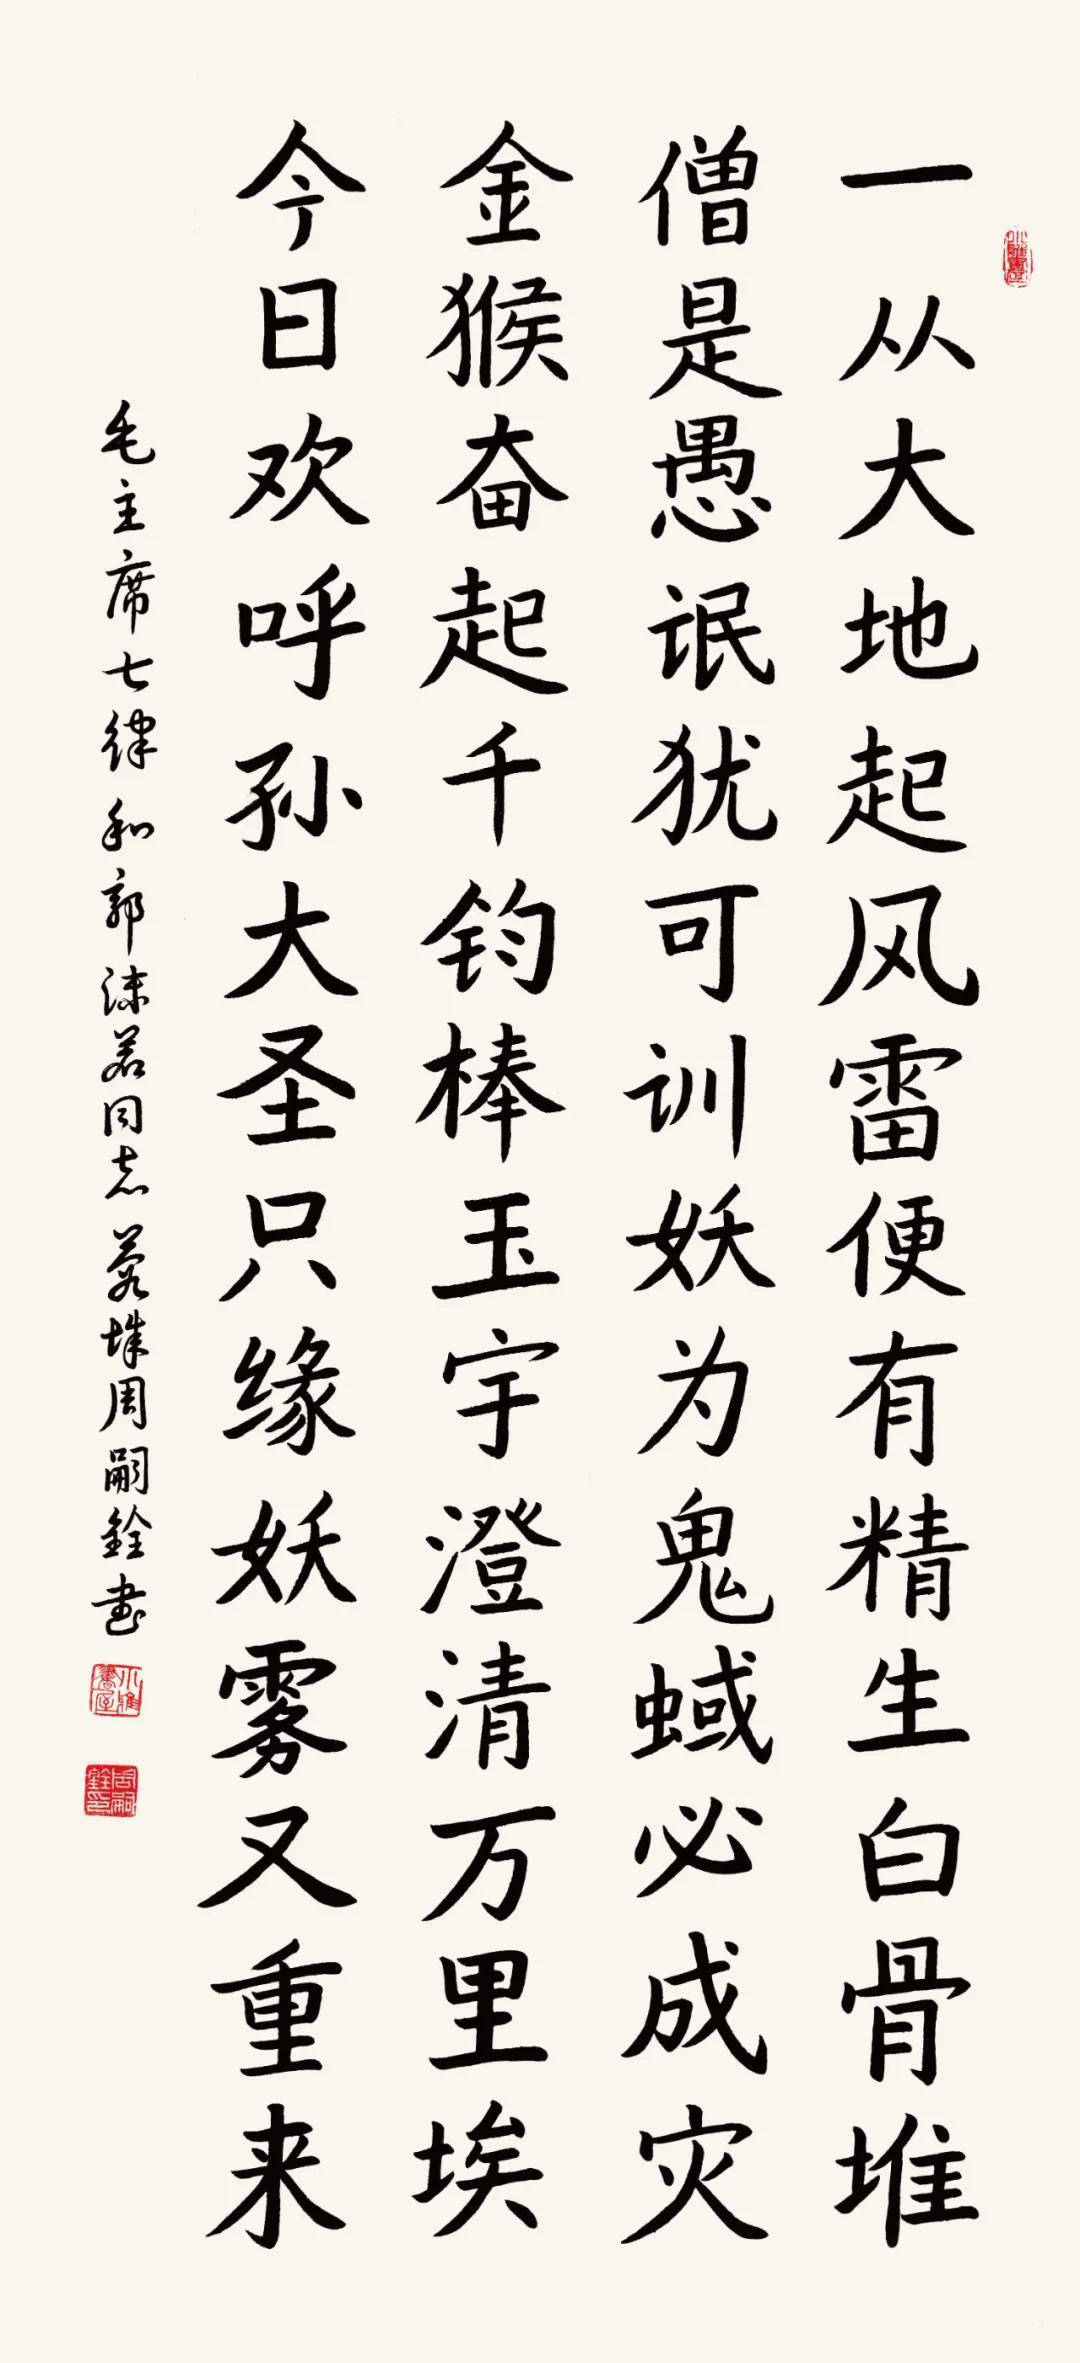 一从大地起风雷便有精生白骨堆
僧是愚氓犹可训妖为鬼蜮必成灾
金猴奋起千钧棒玉宇澄清万里埃
今日欢呼孙大圣只缘妖雾又重来
毛主席七律和郭沫若同志周嗣銓书
周嗣銓印